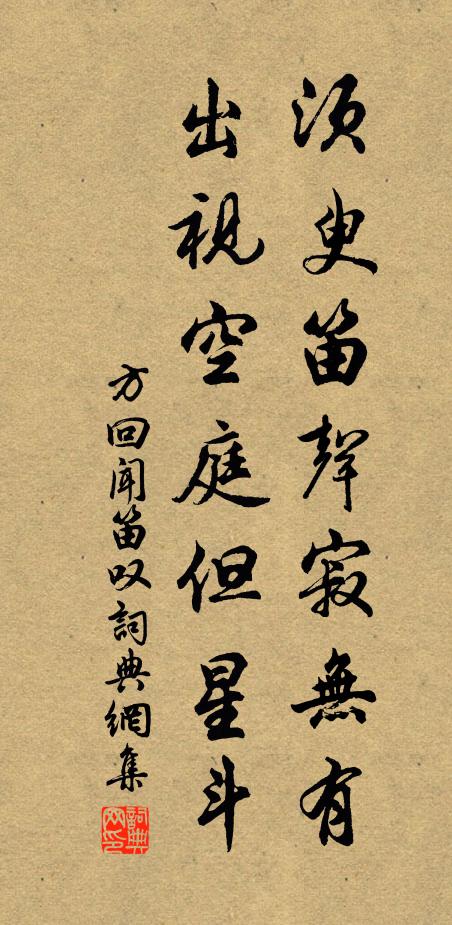 须臾笛聲寂無有
出視空庭但星斗
方回聞笛叹詞典網集
詞典网印